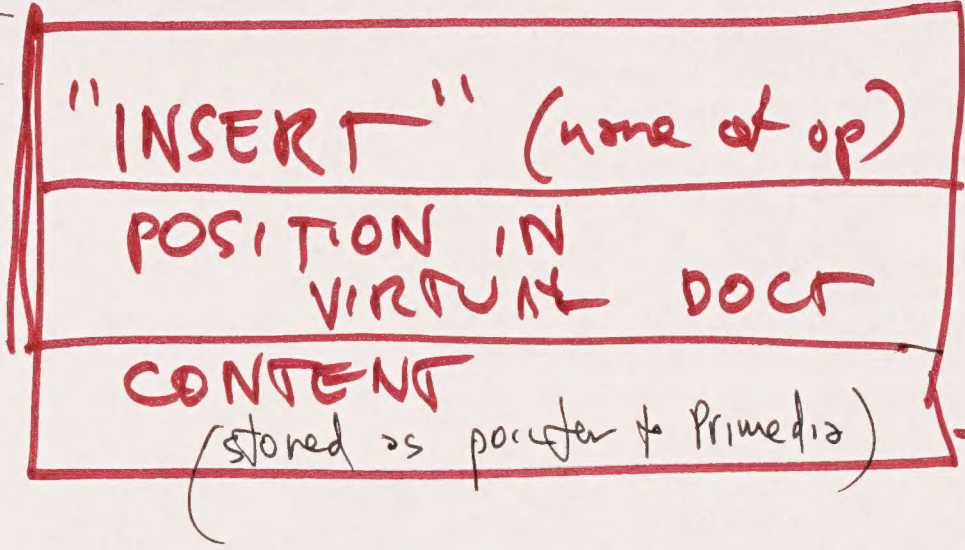 "INSERT" (name of op)
POSITION IN
VIRTUAL DOCT
CONTENT
(stored as pointer to Primedia)